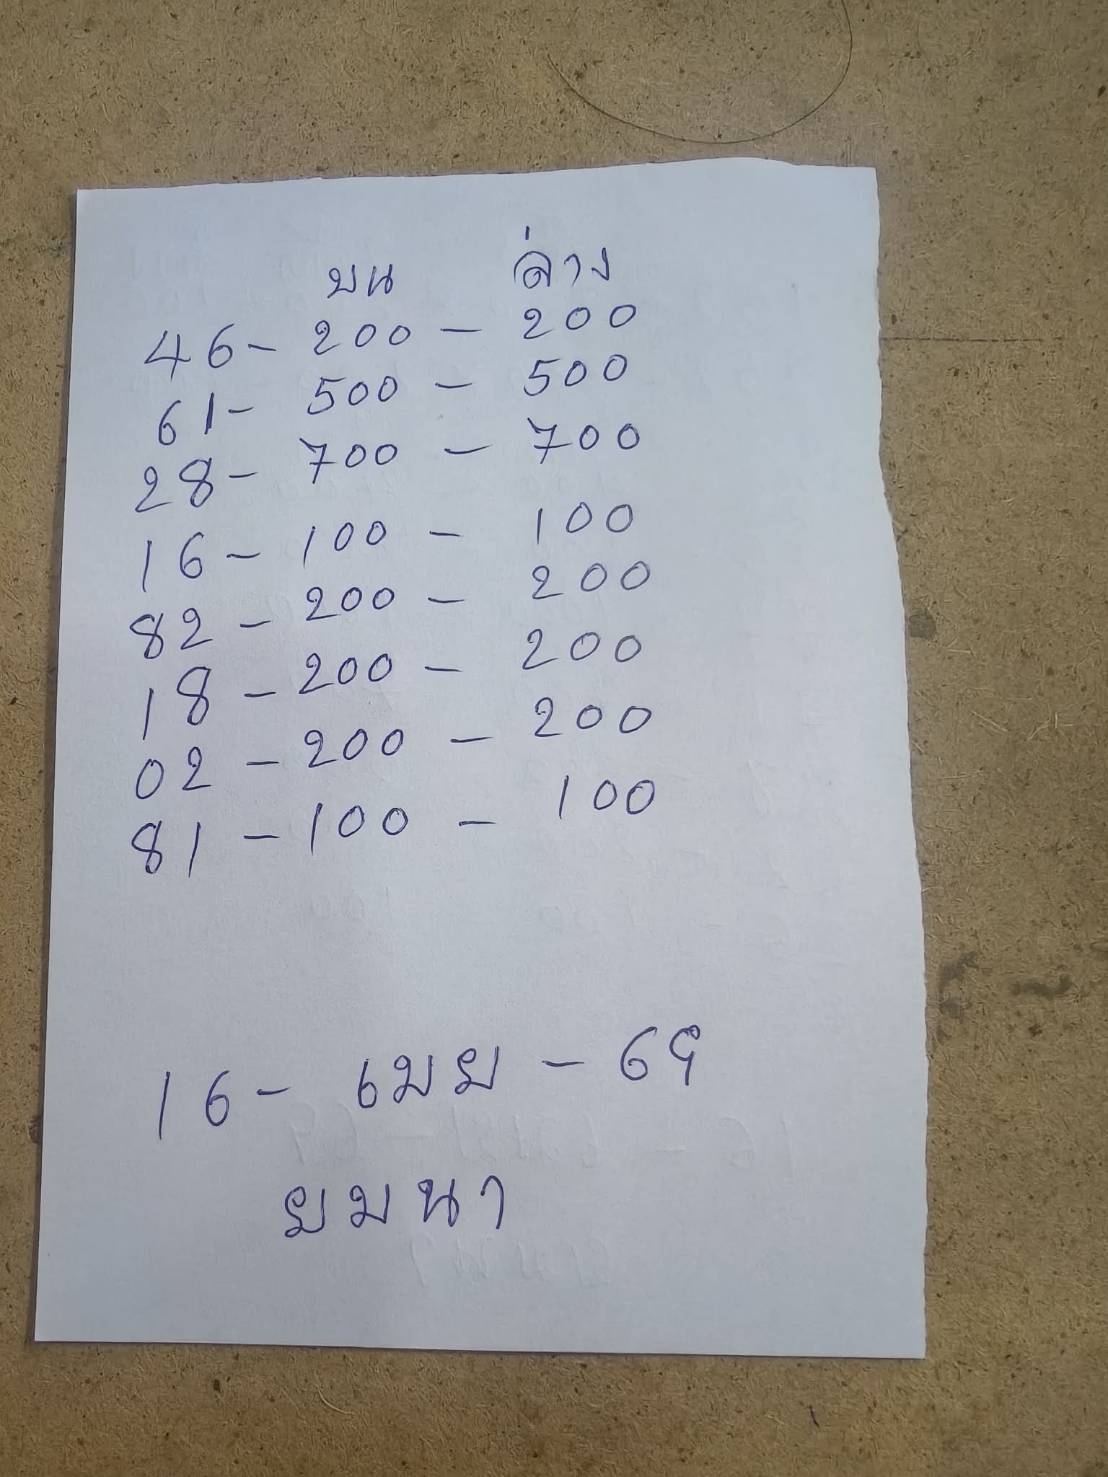 บน ล่าง
46 - 200 - 200
61 - 500 - 500
28 - 700 - 700
16 - 100 - 100
82 - 200 - 200
18 - 200 - 200
02 - 200 - 200
81 - 100 - 100
16 - เมย - 69
ยมนา